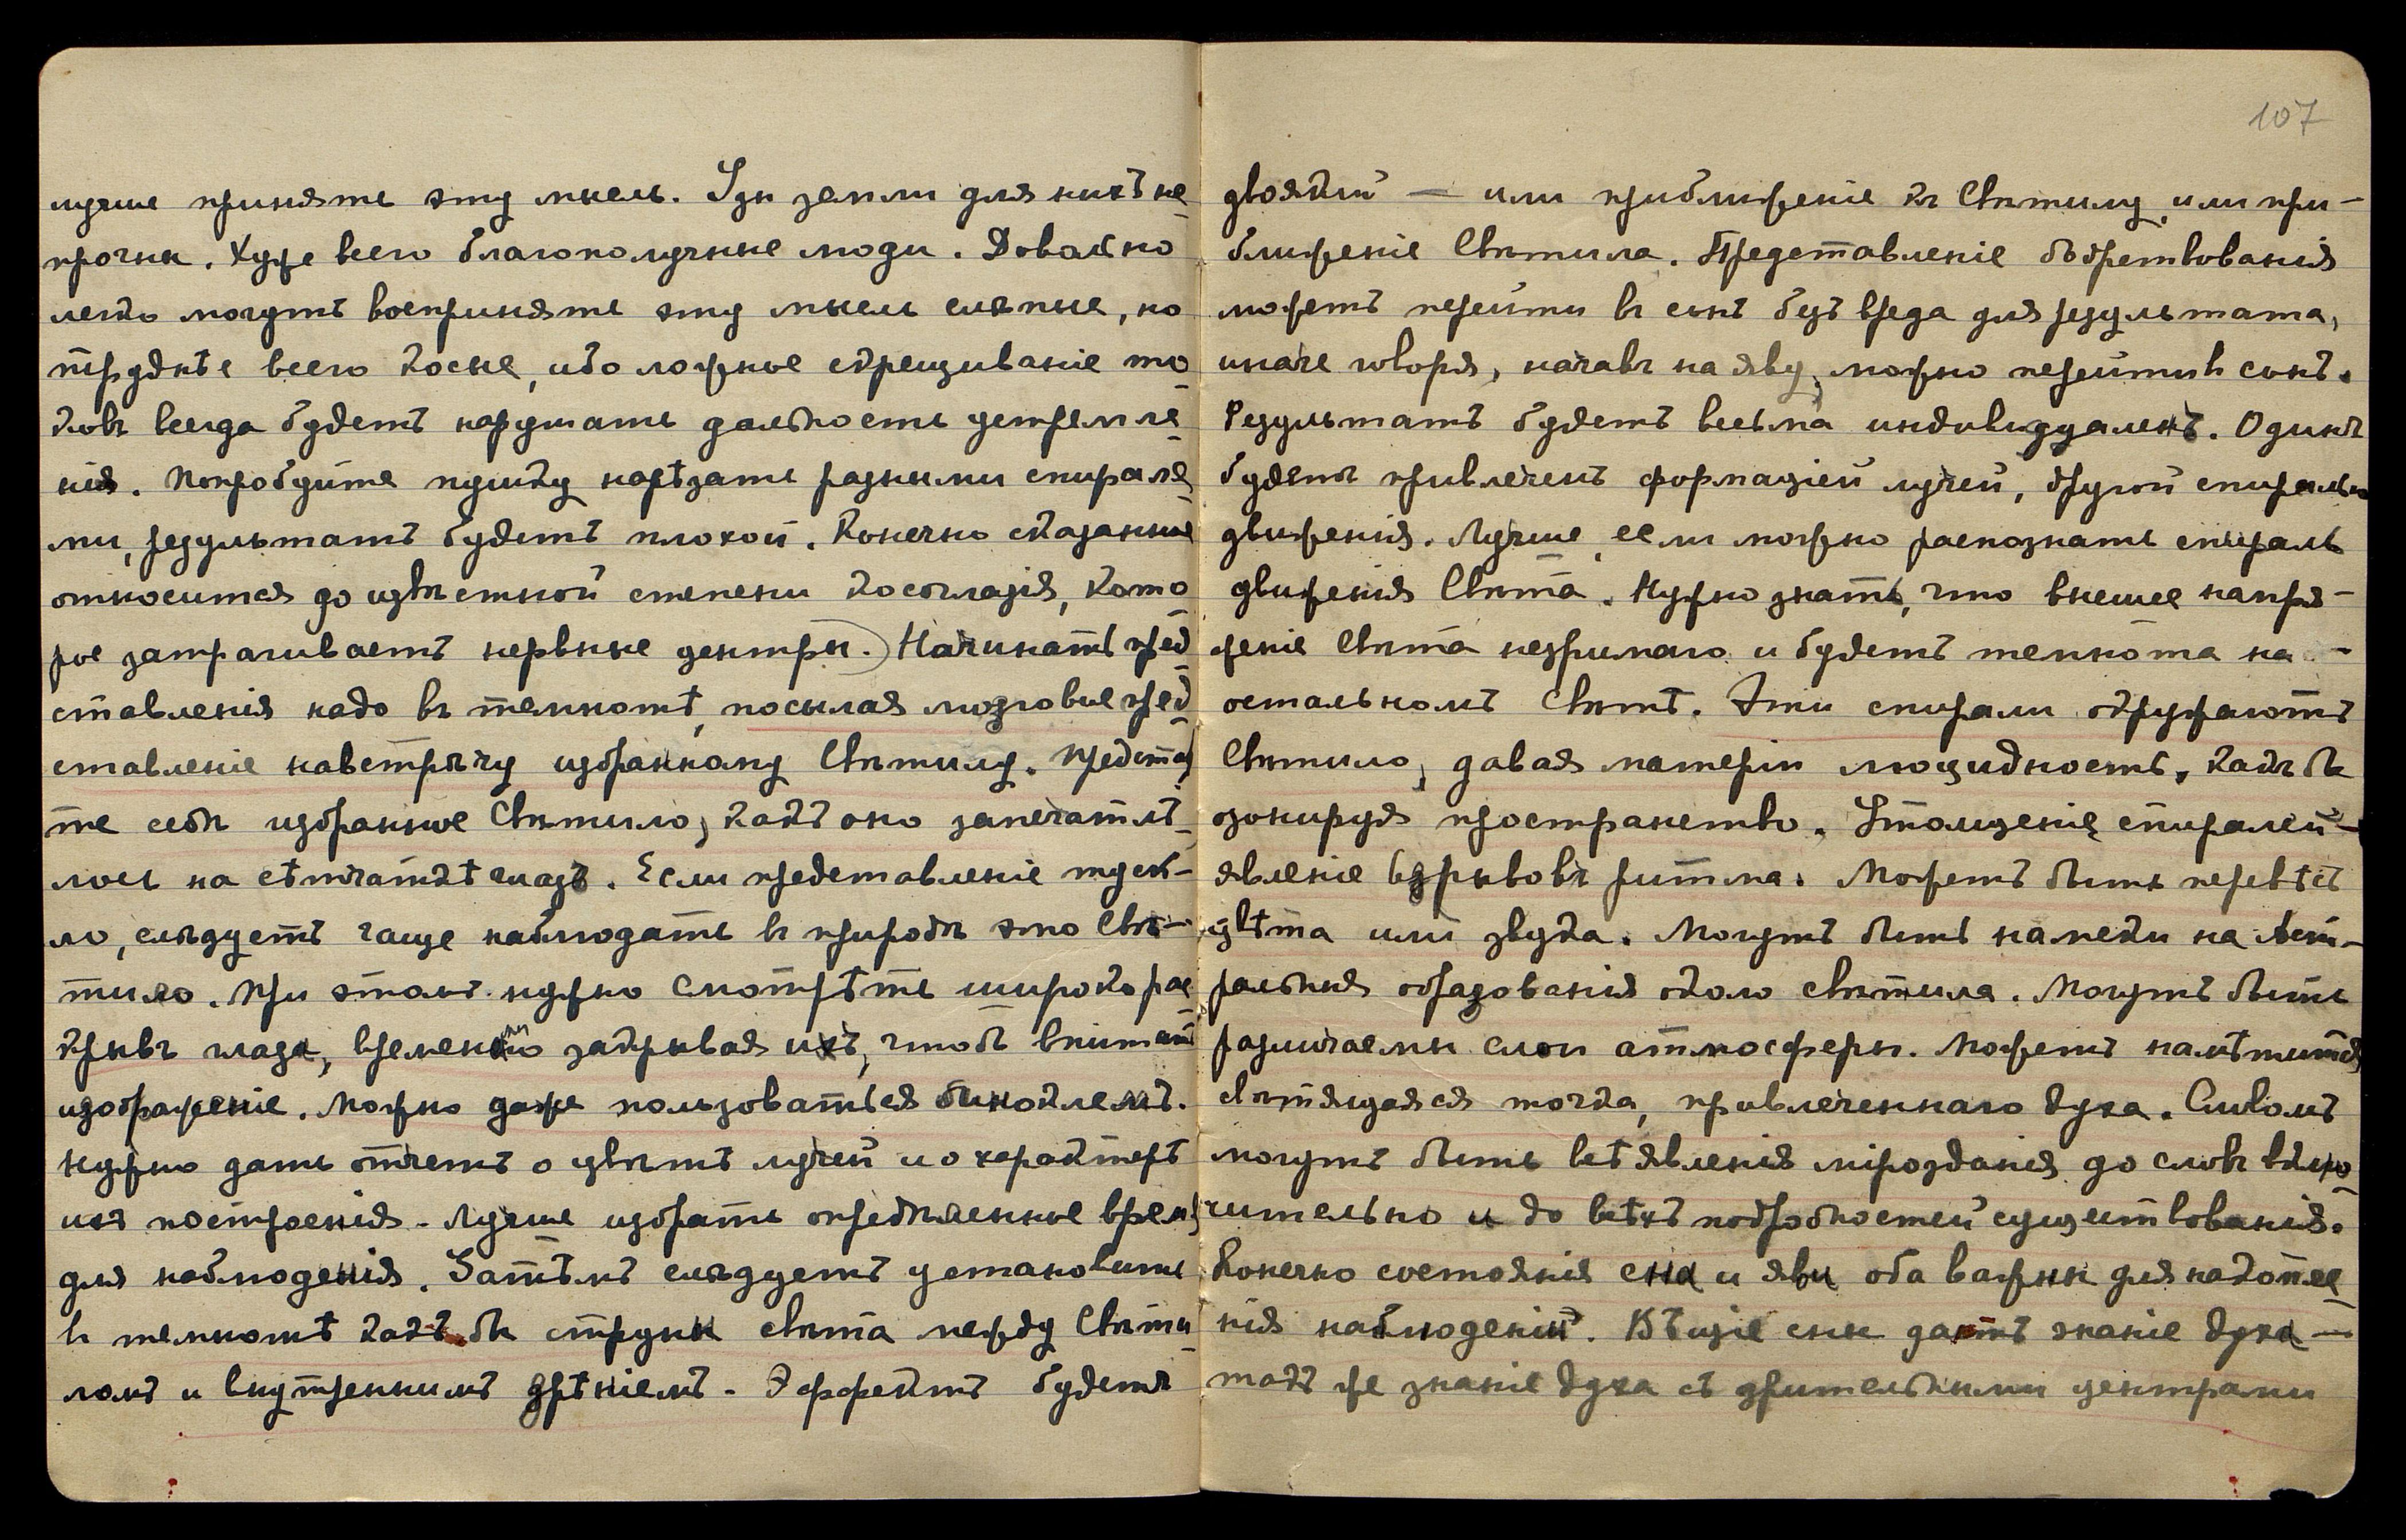 лучше принять эту мысль. Узы земли для нихъ не-
прочны. Хуже всего благополучные люди. Довольно
легко могутъ воспринять эту мысль слѣпые, но
труднѣе всего косые, ибо ложное скрещиваніе то-
ковъ всегда будетъ нарушать дальность устремле-
нія. Попробуйте пушку нарѣзать разными спираля-
ми, результатъ будетъ плохой. Конечно сказанное
относится до извѣстной степени косоглазія, кото-
рое затрагиваетъ нервные центры. Начинать пред-
ставленія надо въ темнотѣ, посылая мозговые пред-
ставленіе навстрѣчу избранному Свѣтилу. Представ
те себѣ избранное Свѣтило, какъ оно запечатлѣ-
лось на сѣтчаткѣ глазъ. Если представленіе туск-
ло, слѣдуетъ чаще наблюдать въ природѣ это Свѣ-
тило. При этомъ нужно смотрѣть широко рас
крывъ глаза, временами закрывая ихъ, чтобъ внимать
изображеніе. Можно даже пользоваться биноклемъ.
Нужно дать отчетъ о цвѣтѣ лучей и о характерѣ
ихъ построенія. Лучше избрать опредѣленное время
для наблюденія. Затѣмъ слѣдуетъ установить
въ темнотѣ какъ бы струны свѣта между Свѣти-
ломъ и внутреннимъ зрѣніемъ. Эффектъ будетъ
107
двоякій — или приближеніе къ Свѣтилу, или при-
ближеніе Свѣтила. Представленіе бодрствованія
можетъ перейти въ сонъ безъ вреда для результата,
иначе говоря, начавъ на яву, можно перейти въ сонъ.
Результатъ будетъ весьма индивидуаленъ. Одинъ
будетъ привлеченъ формаціей лучей, другой спиралью
движенія. Лучше, если можно распознать спираль
движенія Свѣта. Нужно знать, что высшее напря-
женіе Свѣта незримаго и будетъ темнота на -
остальномъ Свѣтѣ. Эти спирали окружаютъ
Свѣтило, давая матеріи люцидность, какъ бы
озонируя пространство. Утолщеніе спиралей -
явленіе взрывовъ ритма. Можетъ быть перевѣсъ
цвѣта или звука. Могутъ быть намеки на Аст-
ральныя образованія около свѣтила. Могутъ быть
различаемы слои атмосферы. Можетъ намѣтится
свѣтящаяся точка, привлеченнаго духа. Словомъ
могутъ быть всѣ явленія мірозданія до словъ вклю-
чительно и до всѣхъ подробностей существованія.
Конечно состоянія сна и яви оба важны для накопле-
нія наблюденій. Вѣщіе сны даютъ знаніе духа —
такъ же знаніе духа съ зрительными центрами